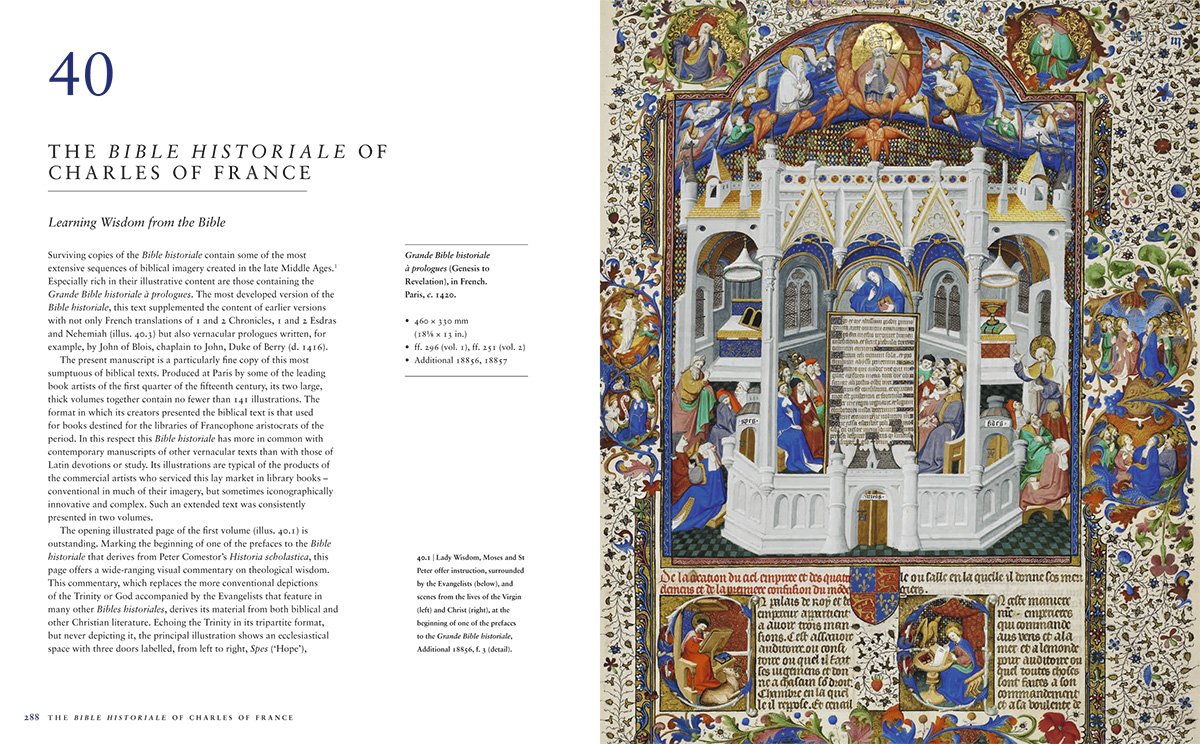 40
THE BIBLE HISTORIALE OF
CHARLES OF FRANCE
Learning Wisdom from the Bible
Surviving copies of the Bible historiale contain some of the most
extensive sequences of biblical imagery created in the late Middle Ages.1
Especially rich in their illustrative content are those containing the
Grande Bible historiale à prologues. The most developed version of the
Bible historiale, this text supplemented the content of earlier versions
with not only French translations of 1 and 2 Chronicles, 1 and 2 Esdras
and Nehemiah (illus. 40.3) but also vernacular prologues written, for
example, by John of Blois, chaplain to John, Duke of Berry (d. 1416).
The present manuscript is a particularly fine copy of this most
sumptuous of biblical texts. Produced at Paris by some of the leading
book artists of the first quarter of the fifteenth century, its two large,
thick volumes together contain no fewer than 141 illustrations. The
format in which its creators presented the biblical text is that used
for books destined for the libraries of Francophone aristocrats of the
period. In this respect this Bible historiale has more in common with
contemporary manuscripts of other vernacular texts than with those of
Latin devotions or study. Its illustrations are typical of the products of
the commercial artists who serviced this lay market in library books –
conventional in much of their imagery, but sometimes iconographically
innovative and complex. Such an extended text was consistently
presented in two volumes.
The opening illustrated page of the first volume (illus. 40.1) is
outstanding. Marking the beginning of one of the prefaces to the Bible
historiale that derives from Peter Comestor's Historia scholastica, this
page offers a wide-ranging visual commentary on theological wisdom.
This commentary, which replaces the more conventional depictions
of the Trinity or God accompanied by the Evangelists that feature in
many other Bibles historiales, derives its material from both biblical and
other Christian literature. Echoing the Trinity in its tripartite format,
but never depicting it, the principal illustration shows an ecclesiastical
space with three doors labelled, from left to right, Spes ('Hope'),
Grande Bible historiale
à prologues (Genesis to
Revelation), in French.
Paris, c. 1420.
• 460 × 330 mm
(18⅛ × 13 in.)
• ff. 296 (vol. 1), ff. 251 (vol. 2)
• Additional 18856, 18857
40.1 | Lady Wisdom, Moses and St
Peter offer instruction, surrounded
by the Evangelists (below), and
scenes from the lives of the Virgin
(left) and Christ (right), at the
beginning of one of the prefaces
to the Grande Bible historiale,
Additional 18856, f. 3 (detail).
288 THE BIBLE HISTORIALE OF CHARLES OF FRANCE
spes
fides
De la creation du ciel empiree et des quatre
elemens et de la premiere confusion du
N palais de roy et de
empereur appartient
a avoir trois man
sions. Cest assavoir
auditoire ou consi
toire ou quel il fait
ses iugemens et don
ne a chascun so droit
Chambre en la quel
le il repose. Et
le ou salle en la quelle il donne ses men
giers.
N ceste maniere
qui commande
aus vens et a la
mer et a le monde
pour auditoire ou
quel toutes choses
sont faites a son
commandement
et a sa voulente de